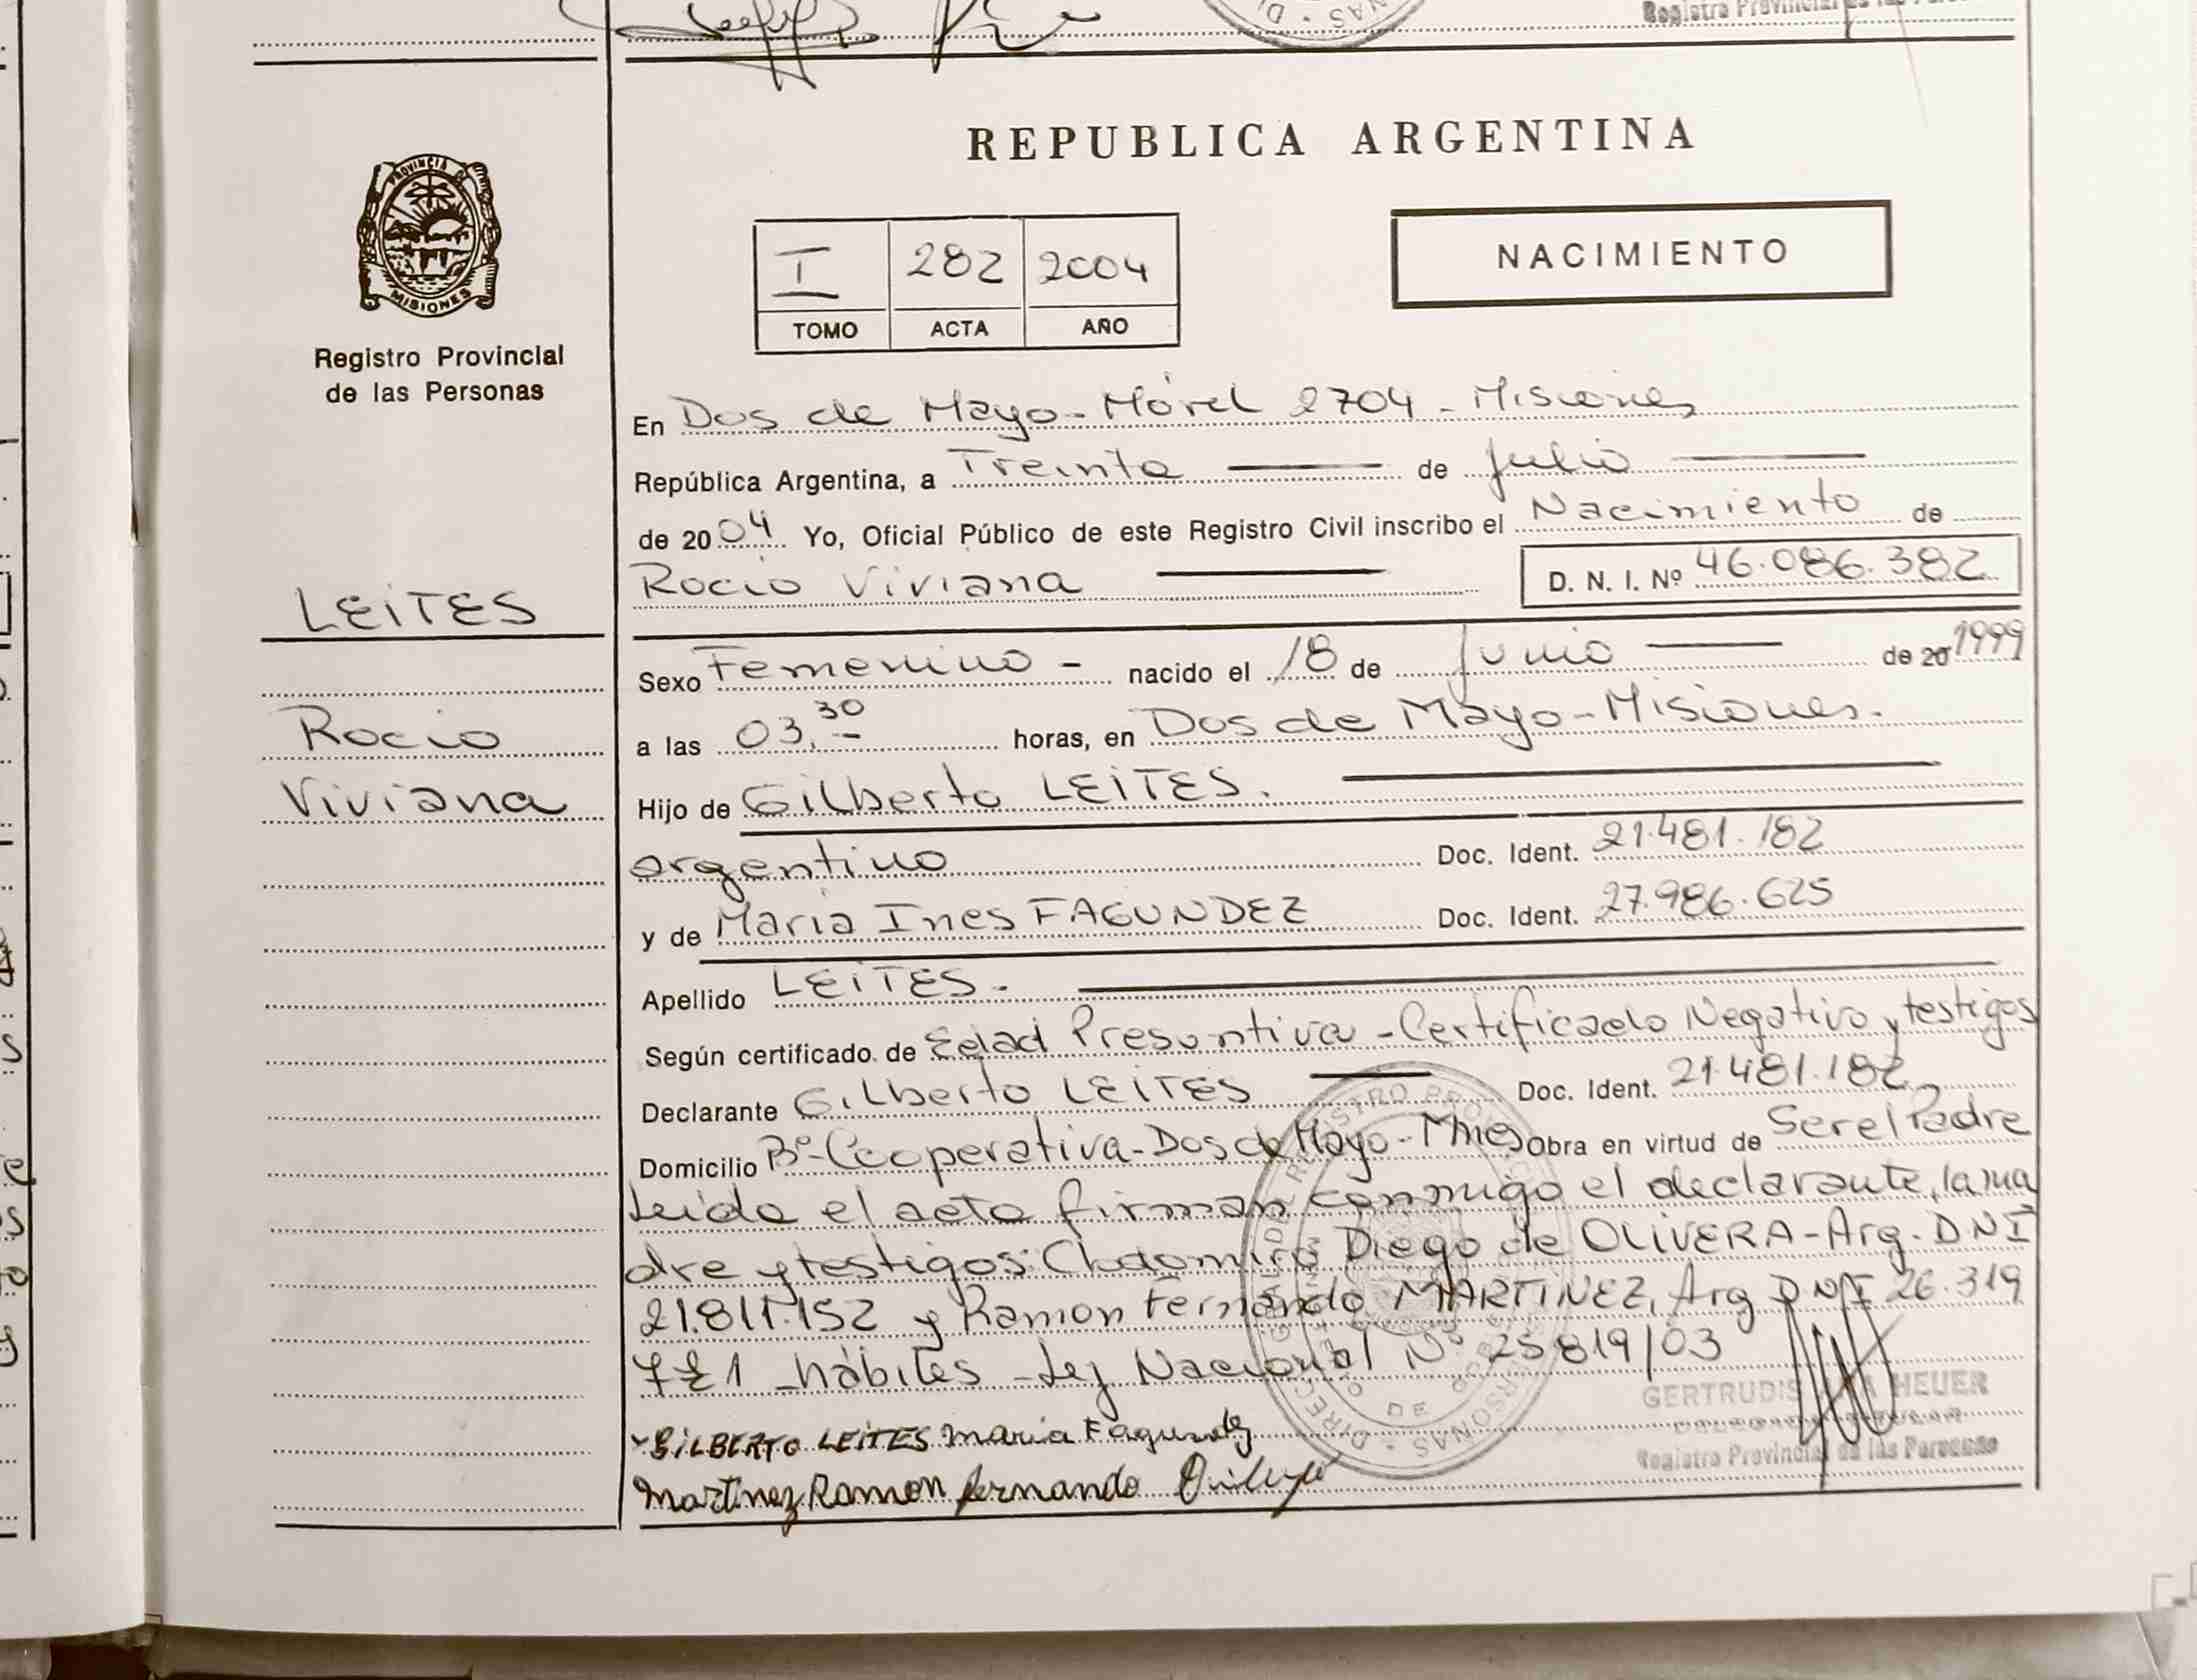 Registro Provincial de las
REPUBLICA ARGENTINA
PROVINCIA DE
MISIONES
Registro Provincial
de las Personas
I 282 2004
TOMO ACTA AÑO
NACIMIENTO
En Dos de Mayo - Móvil 2704 - Misiones
República Argentina, a Treinta de Julio
de 2004 Yo, Oficial Público de este Registro Civil inscribo el Nacimiento de
Rocio Viviana D. N. I. Nº 46.086.382
LEITES
Rocio
Viviana
Sexo Femenino - nacido el 18 de Junio de 20 1999
a las 03,30 horas, en Dos de Mayo - Misiones.
Hijo de Gilberto LEITES.
argentino Doc. Ident. 21.481.182
y de Maria Ines FAGUNDEZ Doc. Ident. 27.986.625
Apellido LEITES.
Según certificado de Edad Presuntiva - Certificado Negativo y testigos
Declarante Gilberto LEITES Doc. Ident. 21.481.182
Domicilio Bº Cooperativa - Dos de Mayo - Mnes Obra en virtud de Ser el Padre
Leida el acta firman conmigo el declarante, la ma
dre y testigos: Clodomiro Diego de OLIVERA - Arg. DNI
21.811.152 y Ramon Fernando MARTINEZ, Arg DNI 26.319
hábiles - Ley Nacional Nº 25819/03
GILBERTO LEITES Maria Fagundez
Martinez Ramon fernando
GERTRUDIS HEUER
Registro Provincial de las Personas